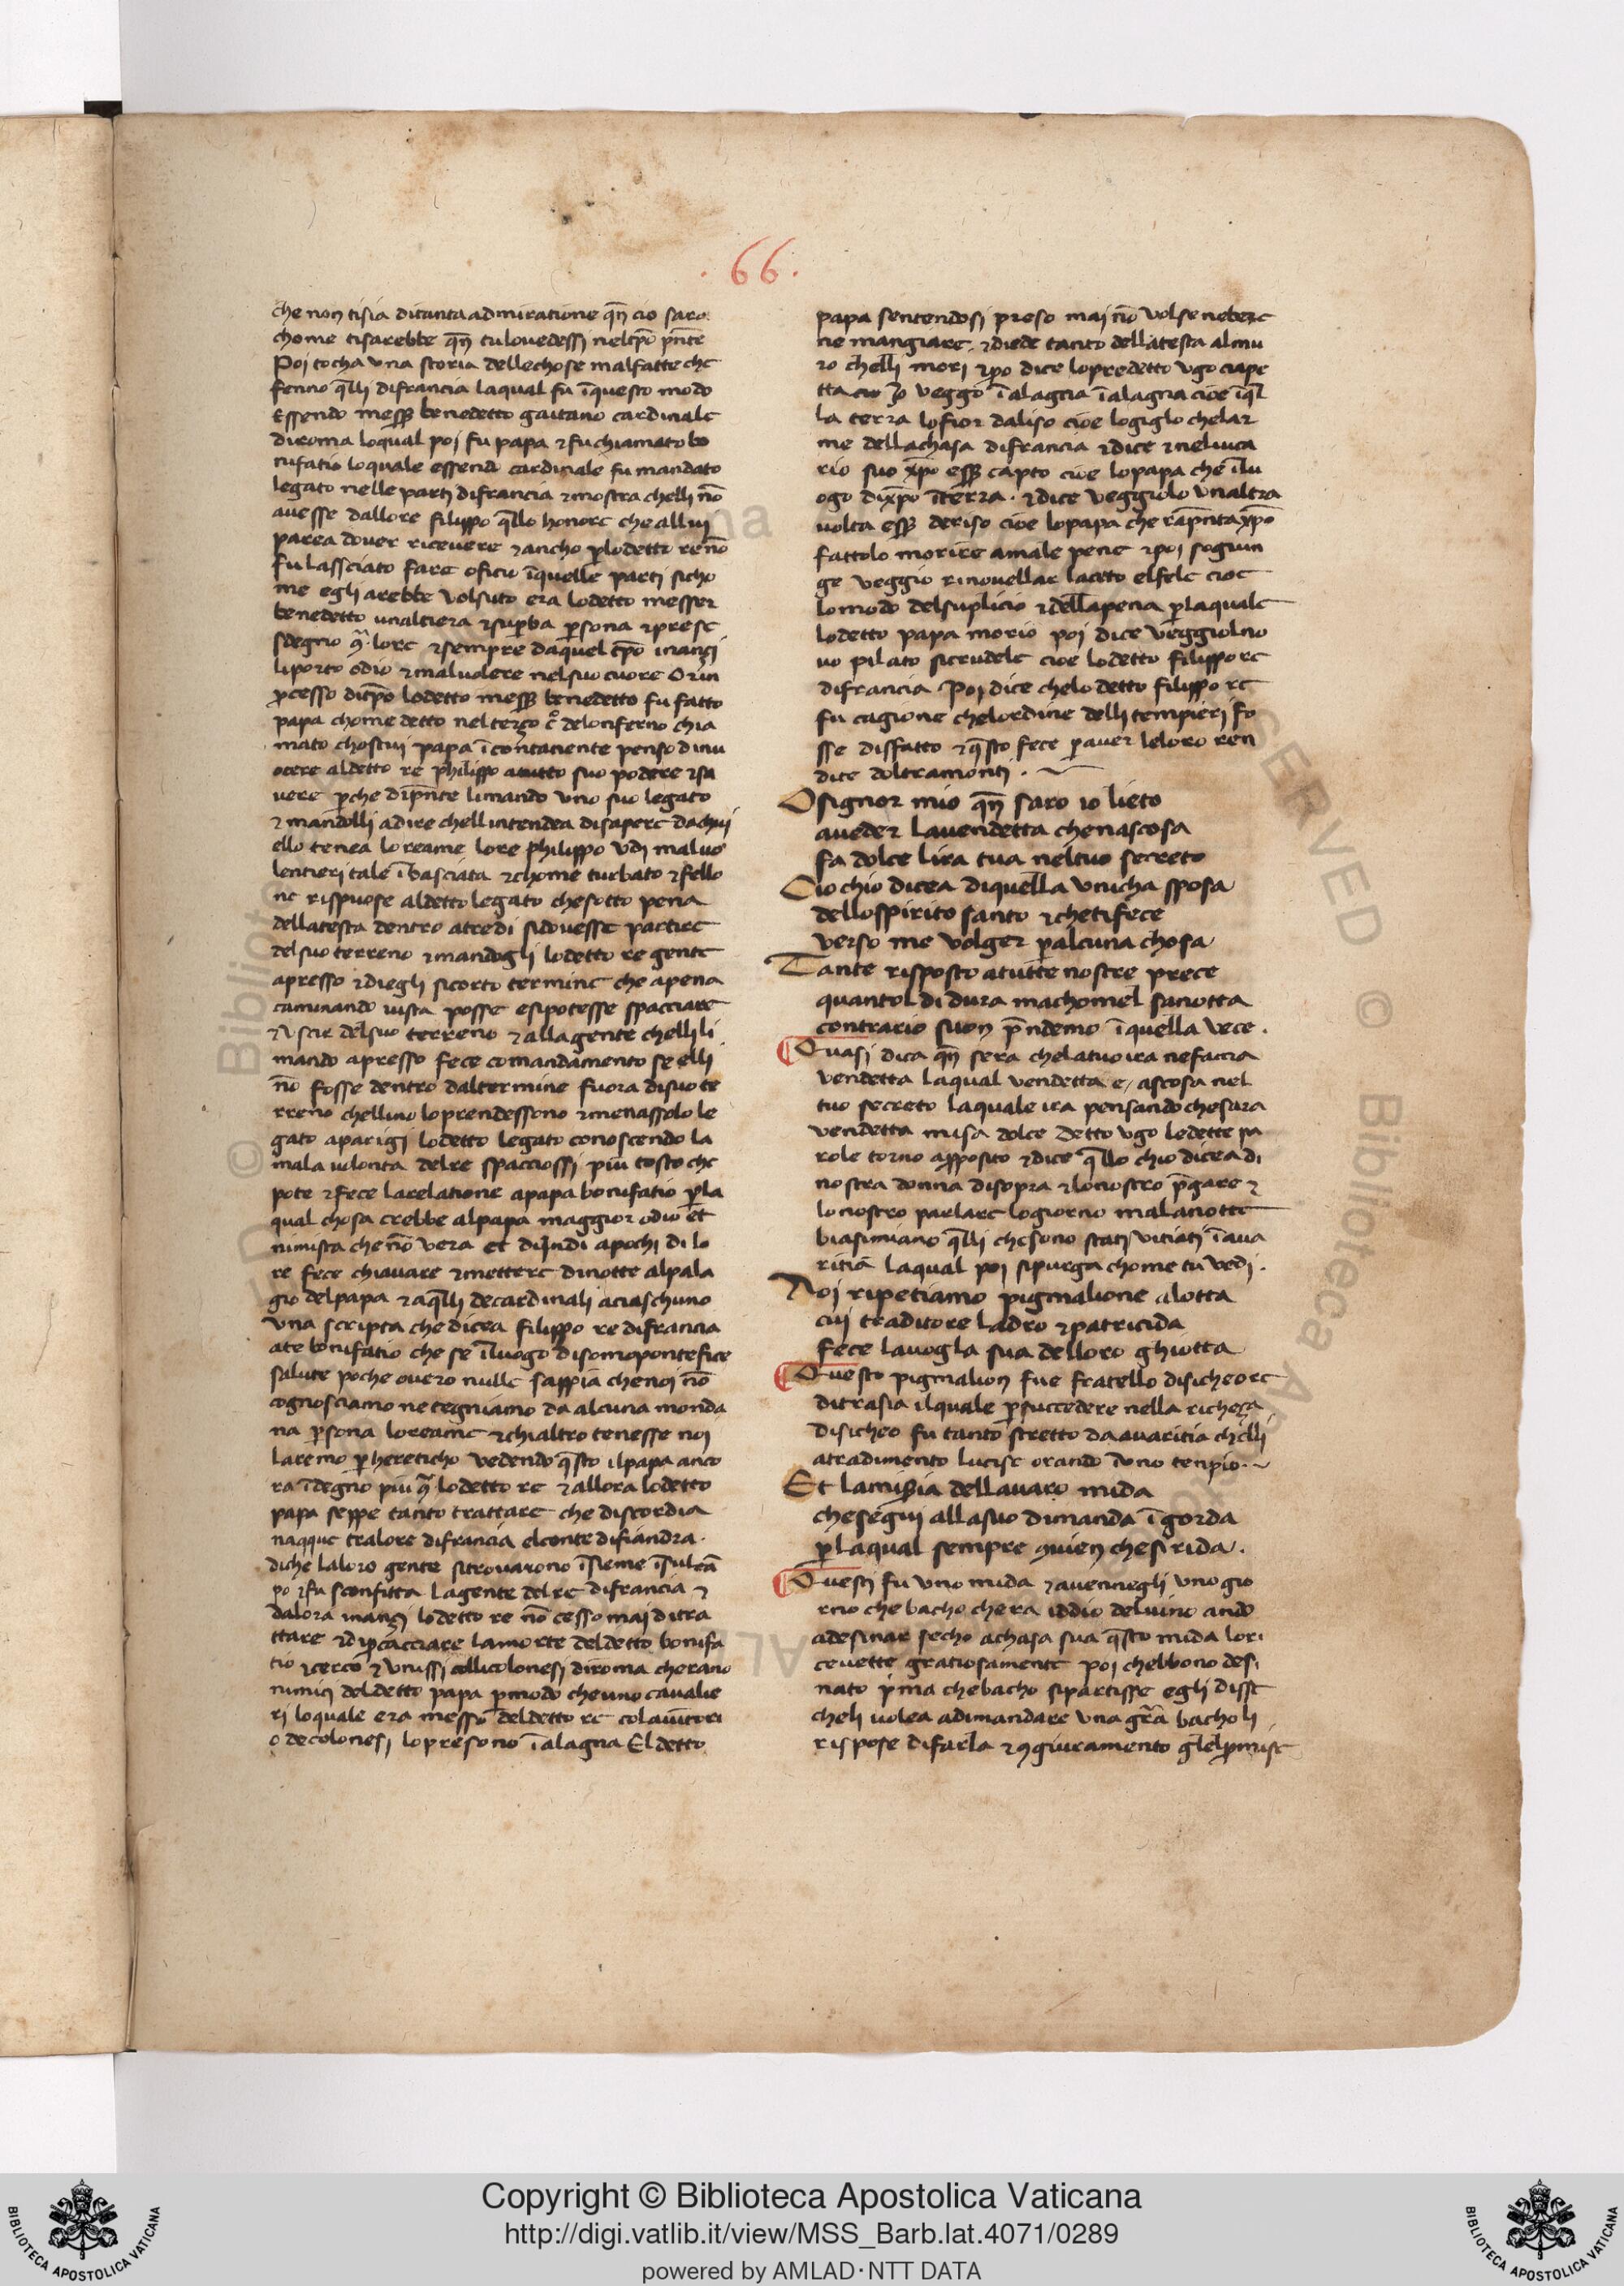 .66.
che non tisia ditanta admiratione qñ cio saro
chome tisarebbe qñ tulovedessj neltp̄o pñte
Poi tocha una storia dellechose malfatte che
fenno q̄lli difrancia laqual fu īquesto modo
Essendo mess̄ benedetto gaitano cardinale
diroma loqual poj fu papa ⁊ fu chiamato bo
nifatio loquale essend cardinale fu mandato
legato nelle partj difrancia ⁊ mostra chelli nō
avesse dallore filippo q̄llo honore che allui
parea dover ricevere ⁊ ancho p̄lodetto re nō
fu lassciato fare oficio īquelle partj sicho
me egli arebbe volsuto era lodetto messer
benedetto unaltiera ⁊ sup̄ba p̄sona ⁊ prese
sdegno q̄ lore ⁊ sempre daquel tp̄o inançj
liporto odio ⁊ malvolere nelsuo cuore Or in
p̄cesso ditp̄o lodetto mess̄ benedetto fu fatto
papa chome detto nel terço c̊ deloniferno chia
mato chostui papa īcontanente penso dinu
ocere aldetto re philippo atutto suo podere ⁊ sa
vere p̄che dip̄nte limando uno suo legato
⁊ mandolli adire chellintendea disapere dachuj
ello tenea loreame lore philippo vdj malvo
lentieri tale ībasciata ⁊ chome turbato ⁊ fello
ne rispuose aldetto legato chesotto pena
dellatesta dentro atredi sidovesse partire
del suo terreno ⁊ mandogli lodetto re gente
apresso ⁊ diegli sicorto termine che apena
caminando iusta posse esipotesse spacciare
⁊ vscir delsuo terreno ⁊ alla gente chelli li
mando apresso fece comandamento se elli
nō fosse dentro daltermine fuora disuo te
rreno chellino loprendessono ⁊ menassolo le
gato aparigi lodetto legato conoscendo la
mala volonta delre spacciossj piu tosto che
pote ⁊ fece larelatione apapa bonifatio p̄la
qual chosa crebbe alpapa maggior odio et
nimista che nō vera et diq̄ndi apochi di lo
re fece chiavare ⁊ mettere dinotte alpala
gio delpapa ⁊ aq̄lli decardinali aciaschuno
una scripta che dicea filippo re difrancia
ate bonifatio che se īluogo disomopontefice
salute poche overo nulle sappia chenoi nō
cognosciamo ne tegniamo da alcuna monda
na p̄sona loreame ⁊ chialtro tenesse noi
laremo p̄ hereticho vedendo q̄sto ilpapa anco
ra īdegno piu q̄ lodetto re ⁊ allora lodetto
papa seppe tanto trattare che discordia
nacque tralore difrancia elconte difiandra.
diche laloro gente sitrovarono īsieme īsulcā
po ⁊ fu sconfitta lagente delre difrancia ⁊
dalora inançj lodetto re nō cesso mai ditra
ttare ⁊ dip̄cacciare lamorte deldetto bonifa
tio ⁊ cerco ⁊ vnissi collicolonesj diroma cherano
nimicj deldetto papa p̄modo cheuno cavalie
rj loquale era messo deldetto re colaiutori
o decolonesj lopresono īalagna El detto
papa sentendosj preso mai nō volse nebere
ne mangiare. ⁊ diede tanto dellatesta almu
ro chelli morj ⁊ p̄o dice lopredetto vgo ciape
tta cio īo veggo īalagna īalagna cioe īq̄l
la terra lofior daliso cioe logiglo chelar
me dellachasa difrancia ⁊ dice ⁊ nelvica
rio suo xp̄o ess̄ capto cioe lopapa che īlu
ogo dixp̄o īterra. ⁊ dice veggiolo unaltra
volta ess̄ deriso cioe lopapa che rap̄nta xp̄o
fattolo morire amale pene ⁊ poj sogiun
ge veggio rinovellar laceto elfele cioe
lomodo delsuplicio ⁊ dellapena p̄laquale
lodetto papa morio poj dice veggiolno
uo pilato sicrudele cioe lodetto filippo re
difrancia Poj dice chelo detto filippo re
fu cagione chelordine delli tempierj fo
sse disfatto ⁊ q̄sto fece p̄aver leloro ren
dite doltramontj.
O signor mio qñ saro io lieto
aveder lavendetta chenascosa
fa dolce lira tua neltuo secreto
Cio chio dicea diquella unicha sposa
dellospirito santo ⁊ chetifece
verso me volger p̄alcuna chosa
Tante risposto atutte nostre prece
quantol di dura machomel sanotta
contrario suon p̄ndemo īquella vece.
Quasi dica qñ sera chelatuo ira nefaccia
vendetta laqual vendetta e, ascosa nel
tuo secreto laquale ira pensando chesara
vendetta misa dolce detto vgo ledette pa
role torno apposito ⁊ dice q̄llo chio dicea di
nostra donna disopra ⁊ lonostro p̄gare ⁊
lonostro parlare logiorno malanotte
biasimiano q̄lli chesono statj vitiatj īava
ritia laqual poj sipurga chome tu vedj.
Noi ripetiamo pigmalione alotta
cuj traditore ladro ⁊ patricida
fece lavogla sua delloro ghiotta
Questo pigmalion fue fratello disicheo re
ditrasia ilquale p̄succedere nella richeça
disicheo fu tanto stretto da avaritia chelli
atradimento lucise orando ī uno tenpio.
Et lamis̄ia dellavaro mida
chesegui allasuo dimanda īgorda
p̄laqual sempre ꝯvien chesi rida.
Questj fu uno mida ⁊ avennegli uno gio
rno che bacho chera iddio delvino ando
adesinar secho achasa sua q̄sto mida lori
cevette gratiosamente poi chebbono desi
nato p̄ma chebacho sipartisse egli disse
cheli volea adimandare una gr̄a bacho li
rispose difarla ⁊ ꝯgiuramento glelp̄mise
Copyright © Biblioteca Apostolica Vaticana
http://digi.vatlib.it/view/MSS_Barb.lat.4071/0289
powered by AMLAD·NTT DATA
BIBLIOTECA APOSTOLICA VATICANA
BIBLIOTECA APOSTOLICA VATICANA